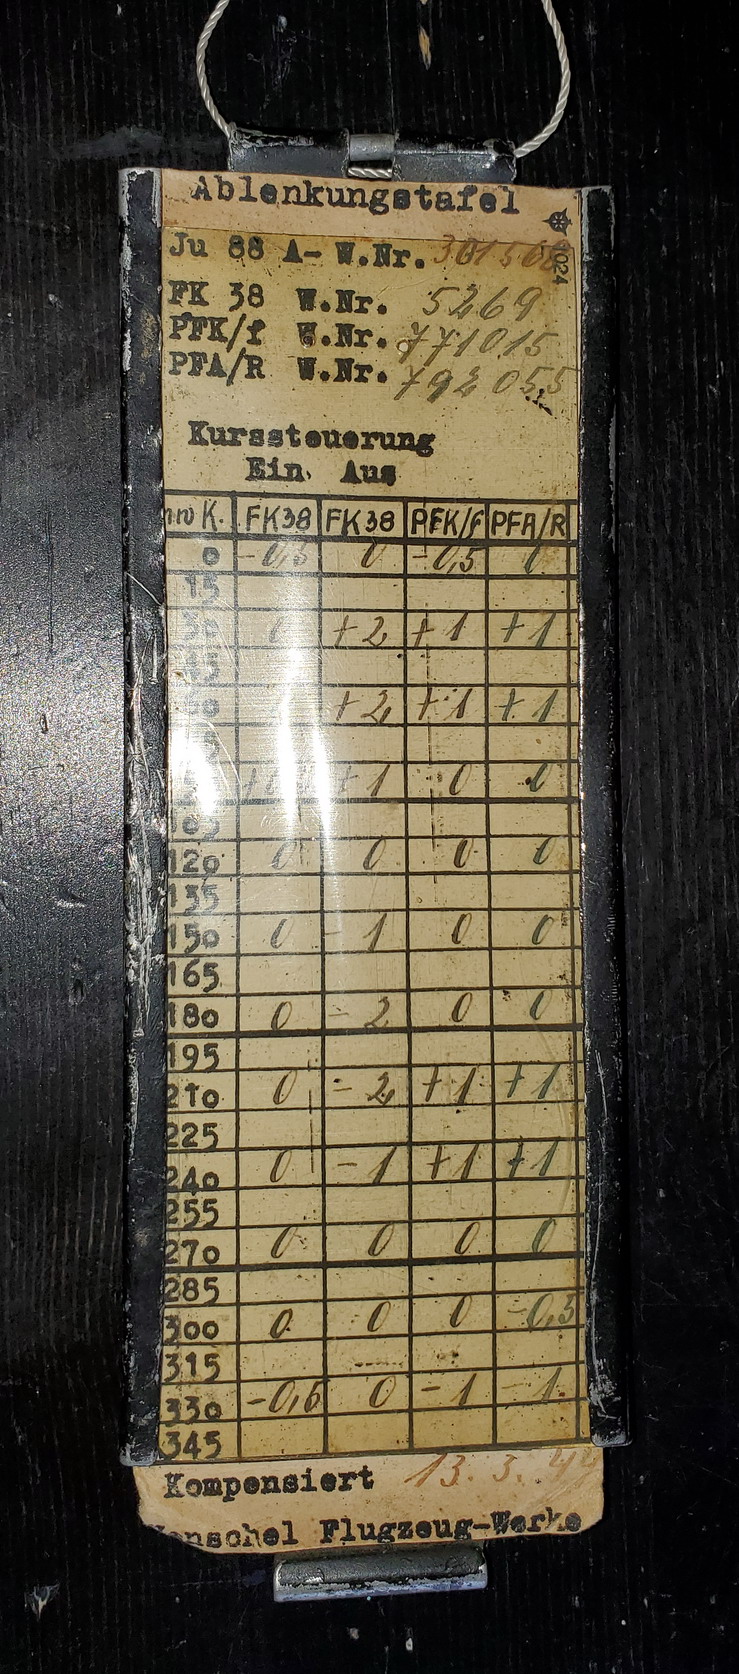 Ablenkungstafel
Ju 88 A- W.Nr.
1024
FK 38 W.Nr. 5269
PFK/f W.Nr. 771015
PFA/R W.Nr. 792055
Kurssteuerung
Ein Aus
K. FK38 FK38 PFK/f PFA/R
0 -0,5 0 -0,5 0
15
30 0 +2 +1 +1
+2 +1 +1
+1 0 0
120 0 0 0 0
135
150 0 -1 0 0
165
180 0 -2 0 0
195
210 0 -2 +1 +1
225
240 0 -1 +1 +1
255
270 0 0 0 0
285
300 0 0 0 -0,5
315
330 -0,6 0 -1 -1
345
Kompensiert 13. 3. 44
Henschel Flugzeug-Werke